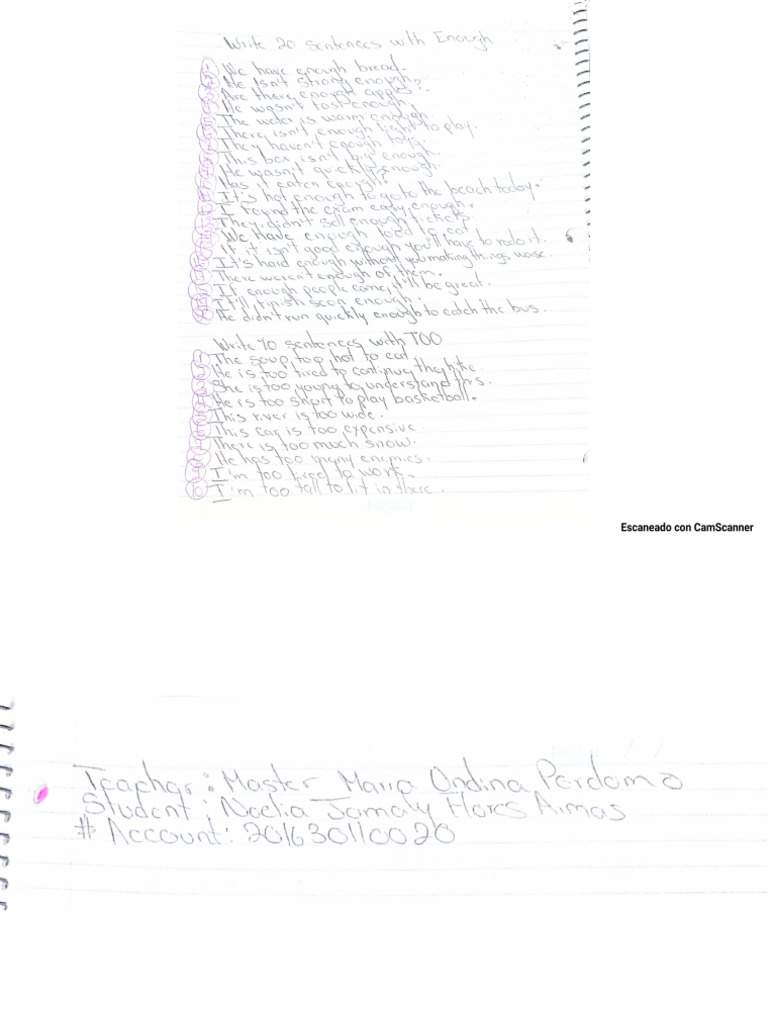 Write 20 sentences with Enough
We have enough bread.
He Isn't strong enough.
Are there enough apples?
He wasn't fast enough.
The water is warm enough.
There isn't enough light to play.
They haven't enough
This box isn't big enough.
He wasn't quickly enough.
Has it eaten enough?
It's hot enough to go to the beach today.
I found the exam easy enough.
They didn't sell enough tickets.
We Have enough food to eat
If it isn't good enough you'll have to redo it.
It's hard enough without you making things worse.
There weren't enough of them.
If enough people come, it'll be great.
It'll finish soon enough.
He didn't run quickly enough to catch the bus.
Write 10 sentences with TOO
The soup, too hot to eat
He is too tired to continue the hike.
She is too young to understand this.
He is too short to play basketball.
This river is too wide.
This car is too expensive
There is too much snow.
He has too many enemies.
I'm too tired to work.
I'm too tall to fit in there.
Escaneado con CamScanner
Teacher: Master Maria Ondina Perdomo
Student: Noelia Flores
# Account: 201630110020